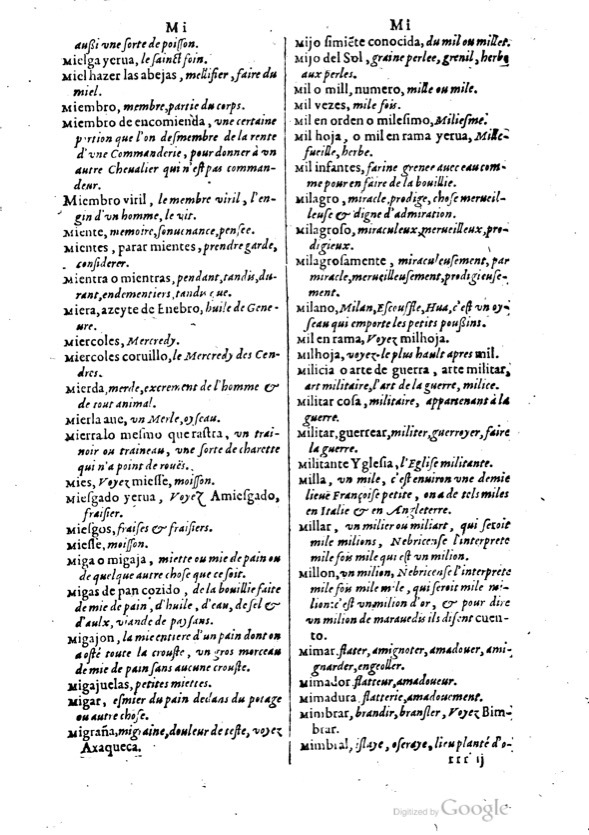 Mi
aussi vne sorte de poisson.
Mielga yerua, le sainct foin.
Miel hazer las abejas, mellifier, faire du
miel.
Miembro, membre, partie du corps.
Miembro de encomienda, vne certaine
portion que l'on desmembre de la rente
d'vne Commanderie, pour donner à vn
autre Cheualier qui n'est pas comman-
deur.
Miembro viril, le membre viril, l'en-
gin d'vn homme, le vit.
Miente, memoire, souuenance, pensee.
Mientes, parar mientes, prendre garde,
considerer.
Mientra o mientras, pendant, tandis, du-
rant, endementiers, tandis que.
Miera, azeyte de Enebro, huile de Gene-
ure.
Miercoles, Mercredy.
Miercoles coruillo, le Mercredy des Cen-
dres.
Mierda, merde, excrement de l'homme &
de tout animal.
Mierla aue, vn Merle, oyseau.
Mierra lo mesmo que rastra, vn trai-
noir ou traineau, vne sorte de charette
qui n'a point de rouës.
Mies, Voyez miesse, moisson.
Miesgado yerua, Voyez Amiesgado,
fraisier.
Miesgos, fraises & fraisiers.
Miesse, moisson.
Miga o migaja, miette ou mie de pain ou
de quelque autre chose que ce soit.
Migas de pan cozido, de la bouillie faite
de mie de pain, d'huile, d'eau, de sel &
d'aulx, viande de paysans.
Migajon, la mie entiere d'un pain dont on
a osté toute la crouste, vn gros morceau
de mie de pain sans aucune crouste.
Migajuelas, petites miettes.
Migar, esmier du pain dedans du potage
ou autre chose.
Migraña, migraine, douleur de teste, voyez
Axaqueca.
Mi
Mijo simiẽte conocida, du mil ou millet.
Mijo del Sol, graine perlee, grenil, herbe
aux perles.
Mil o mill, numero, mille ou mile.
Mil vezes, mile fois.
Mil en orden o milesimo, Miliesme.
Mil hoja, o mil en rama yerua, Mille-
fueille, herbe.
Mil infantes, farine grenee auec eau com-
me pour en faire de la bouillie.
Milagro, miracle, prodige, chose merueil-
leuse & digne d'admiration.
Milagroso, miraculeux, merueilleux, pro-
digieux.
Milagrosamente, miraculeusement, par
miracle, merueilleusement, prodigieuse-
ment.
Milano, Milan, Escouffle, Hua, c'est vn oy-
seau qui emporte les petits poussins.
Mil en rama, Voyez milhoja.
Milhoja, voyez le plus hault apres mil.
Milicia o arte de guerra, arte militar,
art militaire, l'art de la guerre, milice.
Militar cosa, militaire, appartenant à la
guerre.
Militar, guerrear, militer, guerroyer, faire
la guerre.
Militante Yglesia, l'Eglise militante.
Milla, vn mile, c'est enuiron vne demie
lieuë Françoise petite, on a de tels miles
en Italie & en Angleterre.
Millar, vn milier ou miliart, qui seroit
mile milions, Nebricense l'interprete
mile fois mile qui est vn milion.
Millon, vn milion, Nebricense l'interprete
mile fois mile mile, qui seroit mile mi-
lion: c'est vn milion d'or, & pour dire
vn milion de marauedis ils disent cuen-
to.
Mimar, flater, amignoter, amadouer, ami-
gnarder, engeoller.
Mimador, flatteur, amadoueur.
Mimadura, flatterie, amadouement.
Mimbrar, brandir, bransler, Voyez Bim-
brar.
Mimbral, islaye, oseraye, lieu planté d'o-
xxx ij
Digitized by Google